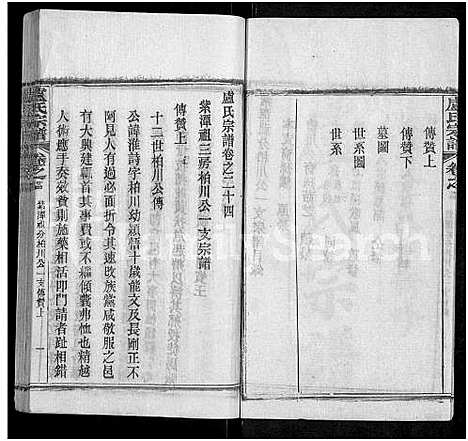 盧氏宗譜 卷之
傳贊上
傳贊下
墓圖
世系圖
世系
盧氏宗譜卷之二十四
紫潭祖三房柏川公一支宗譜
傳贊上
十二世柏川公傳
公諱淮詩字柏川幼穎悟十歲能文及長剛正不
阿見人有過必面折令其速改族黨咸敬服之邑
有大興建輒首其事費或不繼傾囊弗恤也精越
人術應手奏效貧則施藥相活叩門請者趾相錯
盧氏宗譜 卷之 紫潭祖分柏川公一支傳贊上 一